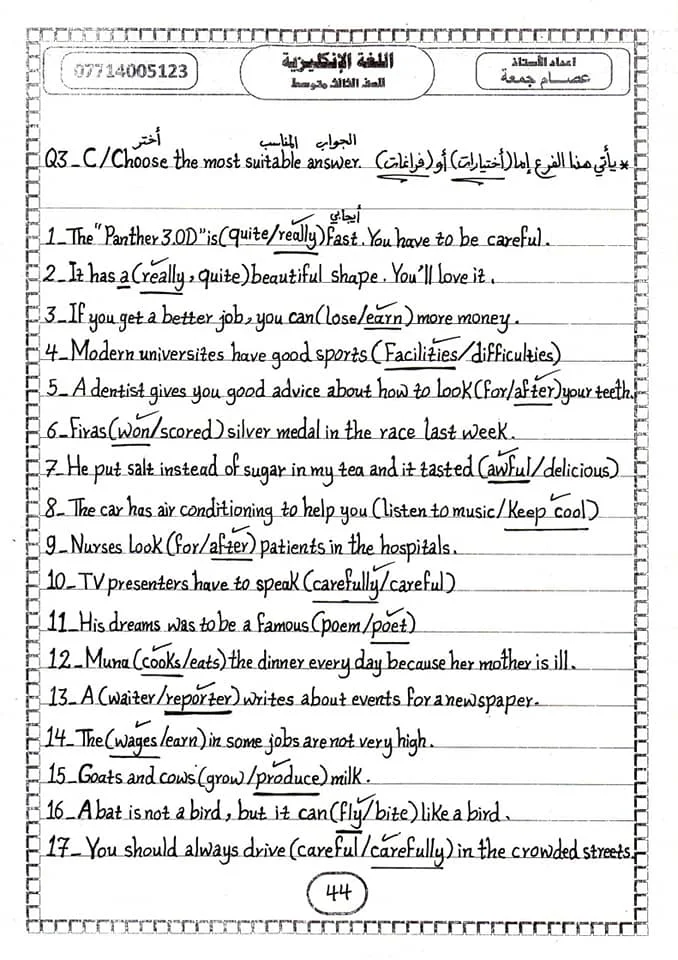 07714005123
اللغة الإنكليزية
الصف الثالث متوسط
اعداد الأستاذ
عصام جمعة
أختر المناسب الجواب
Q3_C/Choose the most suitable answer. (فراغات) أو (أختيارات) يأتي هذا الفرع إما *
أيجابي
1_The "Panther 3.0D" is (quite/really) fast. You have to be careful.
2_It has a (really, quite) beautiful shape. You'll love it.
3_If you get a better job, you can (lose/earn) more money.
4_Modern universites have good sports (Facilities/difficulties)
5_A dentist gives you good advice about how to look (for/after) your teeth.
6_Firas (won/scored) silver medal in the race last week.
7_He put salt instead of sugar in my tea and it tasted (awful/delicious)
8_The car has air conditioning to help you (listen to music/Keep cool)
9_Nurses look (for/after) patients in the hospitals.
10_TV presenters have to speak (carefully/careful)
11_His dreams was to be a famous (poem/poet)
12_Muna (cooks/eats) the dinner every day because her mother is ill.
13_A (waiter/reporter) writes about events for a newspaper.
14_The (wages/earn) in some jobs are not very high.
15_Goats and cows (grow/produce) milk.
16_A bat is not a bird, but it can (fly/bite) like a bird.
17_You should always drive (careful/carefully) in the crowded streets.
44